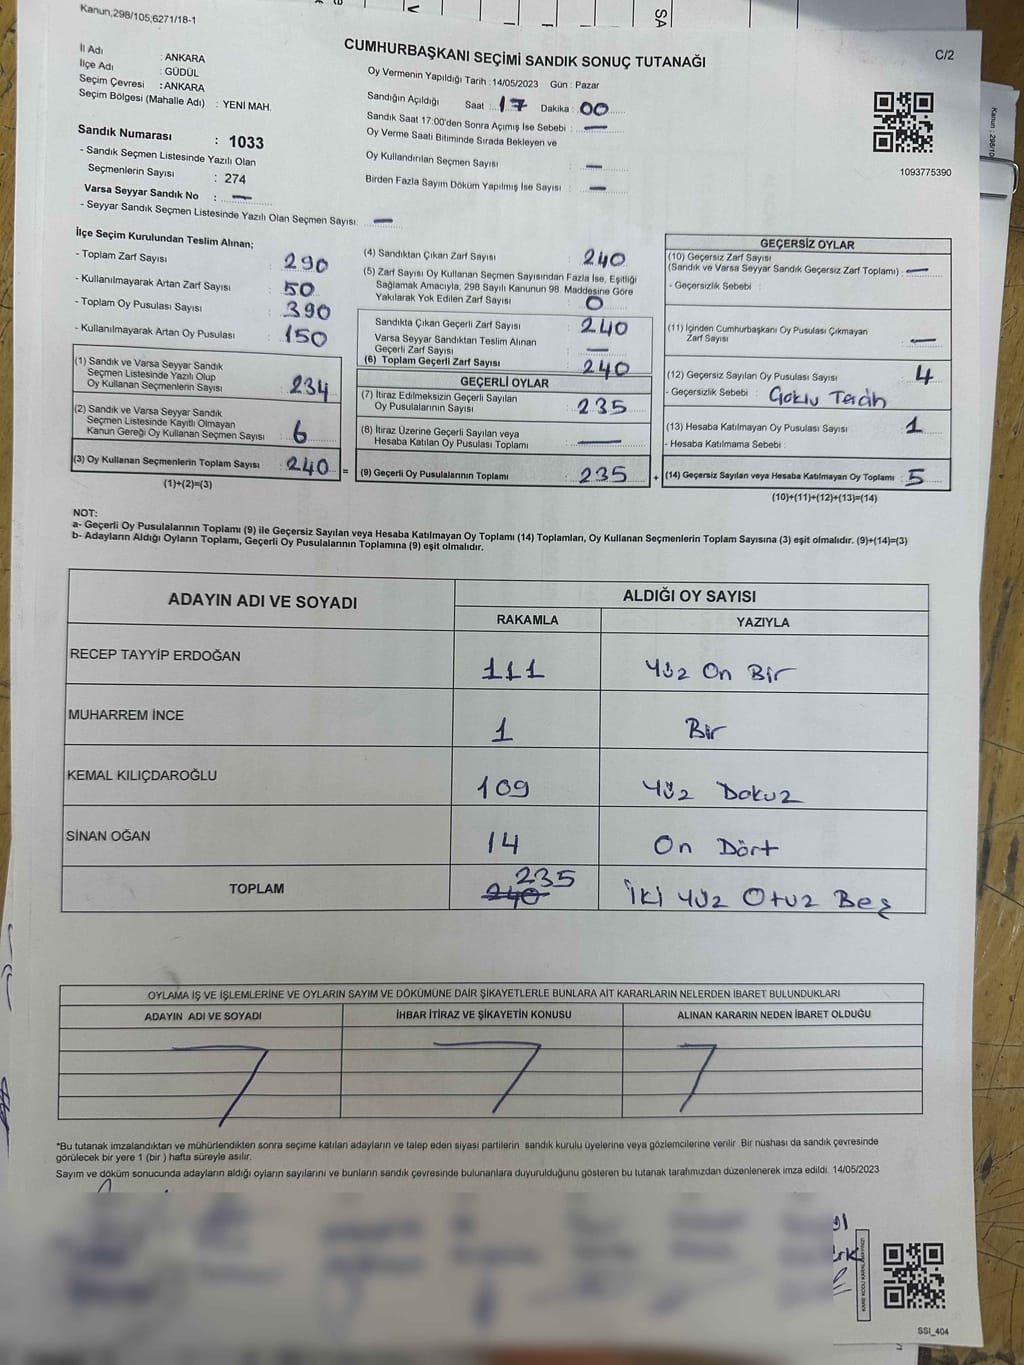 Kanun;298/105,6271/18-1
C/2
CUMHURBAŞKANI SEÇİMİ SANDIK SONUÇ TUTANAĞI
İl Adı : ANKARA
İlçe Adı : GÜDÜL
Seçim Çevresi : ANKARA
Seçim Bölgesi (Mahalle Adı) : YENİ MAH.
Sandık Numarası : 1033
- Sandık Seçmen Listesinde Yazılı Olan
Seçmenlerin Sayısı : 274
Varsa Seyyar Sandık No : —
- Seyyar Sandık Seçmen Listesinde Yazılı Olan Seçmen Sayısı: —
Oy Vermenin Yapıldığı Tarih : 14/05/2023 Gün : Pazar
Sandığın Açıldığı Saat : 17 Dakika : 00
Sandık Saat 17:00'den Sonra Açımış İse Sebebi : —
Oy Verme Saati Bitiminde Sırada Bekleyen ve
Oy Kullandırılan Seçmen Sayısı : —
Birden Fazla Sayım Döküm Yapılmış İse Sayısı : —
1093775390
İlçe Seçim Kurulundan Teslim Alınan;
- Toplam Zarf Sayısı : 290
- Kullanılmayarak Artan Zarf Sayısı : 50
- Toplam Oy Pusulası Sayısı : 390
- Kullanılmayarak Artan Oy Pusulası : 150
(1) Sandık ve Varsa Seyyar Sandık
Seçmen Listesinde Yazılı Olup
Oy Kullanan Seçmenlerin Sayısı : 234
(2) Sandık ve Varsa Seyyar Sandık
Seçmen Listesinde Kayıtlı Olmayan
Kanun Gereği Oy Kullanan Seçmen Sayısı : 6
(3) Oy Kullanan Seçmenlerin Toplam Sayısı : 240 =
(1)+(2)=(3)
(4) Sandıktan Çıkan Zarf Sayısı : 240
(5) Zarf Sayısı Oy Kullanan Seçmen Sayısından Fazla İse, Eşitliği
Sağlamak Amacıyla, 298 Sayılı Kanunun 98. Maddesine Göre
Yakılarak Yok Edilen Zarf Sayısı : 0
Sandıkta Çıkan Geçerli Zarf Sayısı : 240
Varsa Seyyar Sandıktan Teslim Alınan
Geçerli Zarf Sayısı : —
(6) Toplam Geçerli Zarf Sayısı : 240
GEÇERLİ OYLAR
(7) İtiraz Edilmeksizin Geçerli Sayılan
Oy Pusulalarının Sayısı : 235
(8) İtiraz Üzerine Geçerli Sayılan veya
Hesaba Katılan Oy Pusulası Toplamı : —
(9) Geçerli Oy Pusulalarının Toplamı : 235 +
GEÇERSİZ OYLAR
(10) Geçersiz Zarf Sayısı
(Sandık ve Varsa Seyyar Sandık Geçersiz Zarf Toplamı) : —
- Geçersizlik Sebebi :
(11) İçinden Cumhurbaşkanı Oy Pusulası Çıkmayan
Zarf Sayısı : —
(12) Geçersiz Sayılan Oy Pusulası Sayısı : 4
- Geçersizlik Sebebi : Çoklu Tercih
(13) Hesaba Katılmayan Oy Pusulası Sayısı : 1
- Hesaba Katılmama Sebebi :
(14) Geçersiz Sayılan veya Hesaba Katılmayan Oy Toplamı : 5
(10)+(11)+(12)+(13)=(14)
NOT:
a- Geçerli Oy Pusulalarının Toplamı (9) ile Geçersiz Sayılan veya Hesaba Katılmayan Oy Toplamı (14) Toplamları, Oy Kullanan Seçmenlerin Toplam Sayısına (3) eşit olmalıdır. (9)+(14)=(3)
b- Adayların Aldığı Oyların Toplamı, Geçerli Oy Pusulalarının Toplamına (9) eşit olmalıdır.
ADAYIN ADI VE SOYADI
ALDIĞI OY SAYISI
RAKAMLA YAZIYLA
RECEP TAYYİP ERDOĞAN 111 Yüz On Bir
MUHARREM İNCE 1 Bir
KEMAL KILIÇDAROĞLU 109 Yüz Dokuz
SİNAN OĞAN 14 On Dört
TOPLAM 240 235 İki Yüz Otuz Beş
OYLAMA İŞ VE İŞLEMLERİNE VE OYLARIN SAYIM VE DÖKÜMÜNE DAİR ŞİKAYETLERLE BUNLARA AİT KARARLARIN NELERDEN İBARET BULUNDUKLARI
ADAYIN ADI VE SOYADI İHBAR İTİRAZ VE ŞİKAYETİN KONUSU ALINAN KARARIN NEDEN İBARET OLDUĞU
*Bu tutanak imzalandıktan ve mühürlendikten sonra seçime katılan adayların ve talep eden siyasi partilerin sandık kurulu üyelerine veya gözlemcilerine verilir .Bir nüshası da sandık çevresinde
görülecek bir yere 1 (bir ) hafta süreyle asılır.
Sayım ve döküm sonucunda adayların aldığı oyların sayılarını ve bunların sandık çevresinde bulunanlara duyurulduğunu gösteren bu tutanak tarafımızdan düzenlenerek imza edildi. 14/05/2023
SSI_404